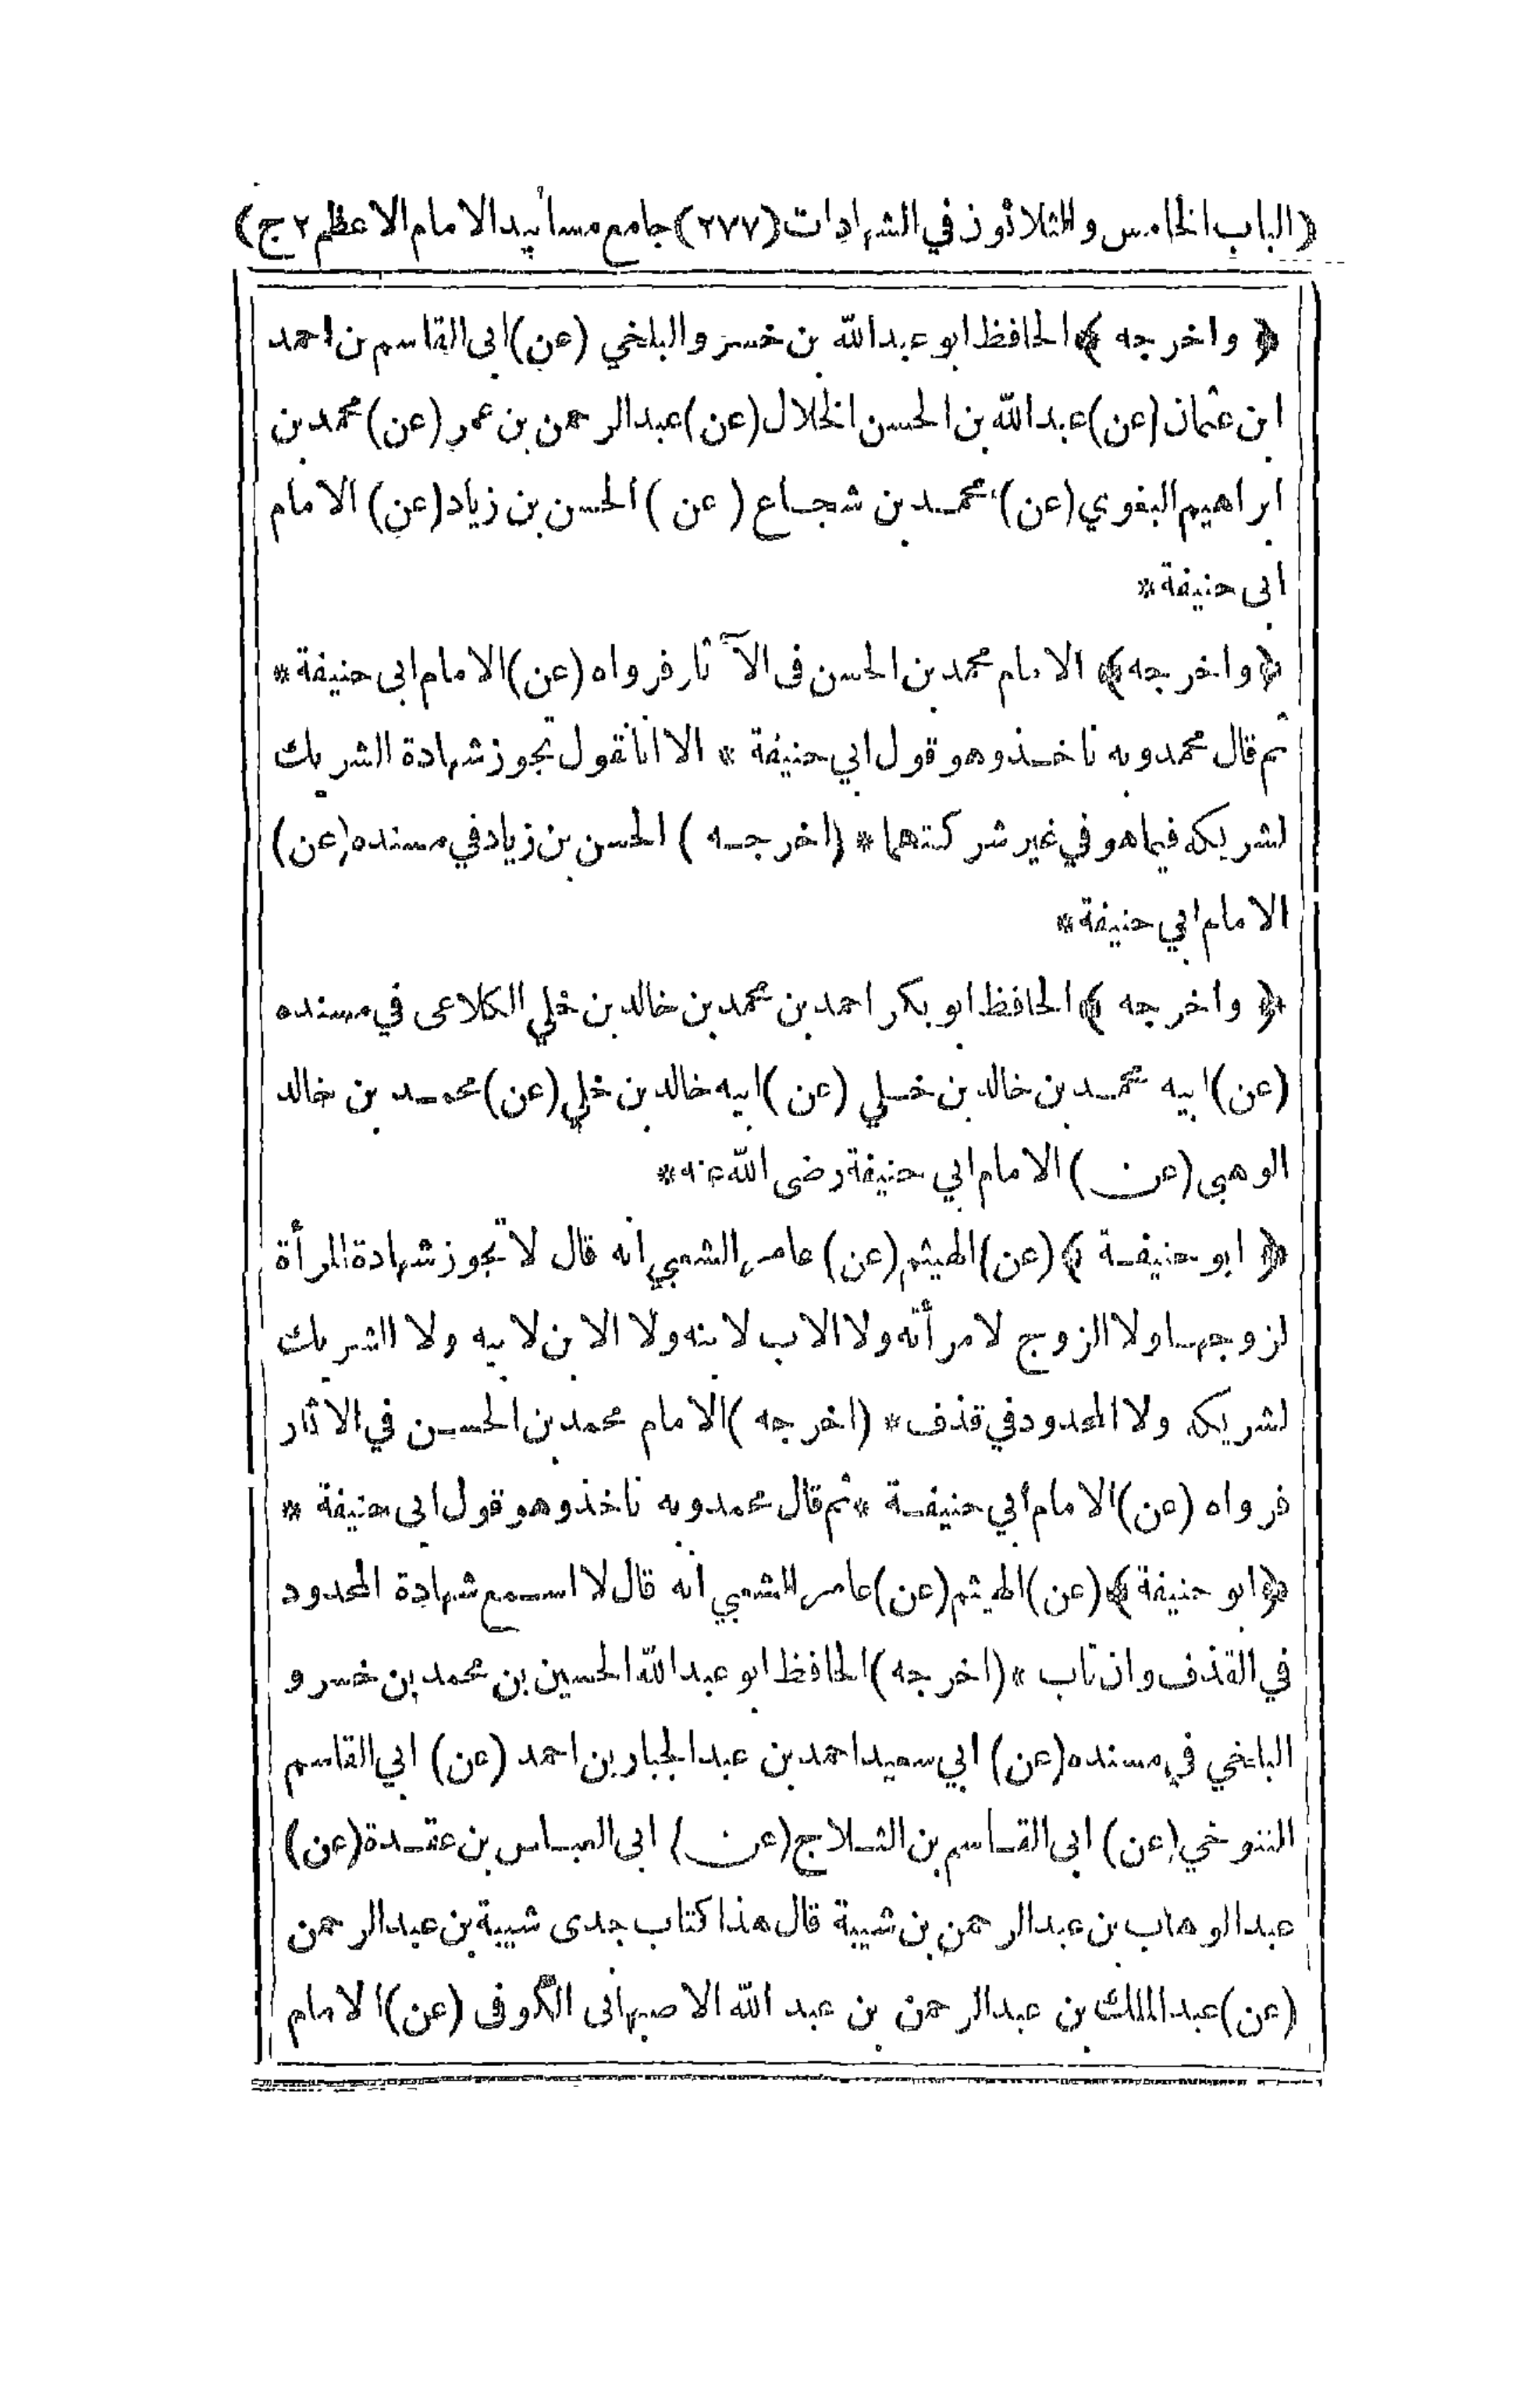 (الباب الخامس والثلاثون في الشهادات (٢٧٧) جامع مسانيد الامام الاعظم ٢ ج)
﴿ واخرجه ﴾ الحافظ ابو عبدالله بن خسرو البلخي (عن) ابى القاسم بن احمد
ابن عثمان (عن) عبدالله بن الحسن الخلال (عن) عبدالرحمن بن عمر (عن) محمد بن
ابراهيم البغوي (عن) محمد بن شجاع (عن) الحسن بن زياد (عن) الامام
ابى حنيفة *
﴿ واخرجه ﴾ الامام محمد بن الحسن فى الآثار فرواه (عن) الامام ابى حنيفة *
ثم قال محمد وبه ناخذ وهو قول ابي حنيفة * الا انا نقول تجوز شهادة الشريك
لشريكه فيما هو في غير شركتهما * (اخرجه) الحسن بن زياد في مسنده (عن)
الامام ابي حنيفة *
﴿ واخرجه ﴾ الحافظ ابو بكر احمد بن محمد بن خالد بن خلي الكلاعى في مسنده
(عن) ابيه محمد بن خالد بن خلي (عن) ابيه خالد بن خلي (عن) محمد بن خالد
الوهبي (عن) الامام ابي حنيفة رضى الله عنه *
﴿ ابو حنيفة ﴾ (عن) الهيثم (عن) عامر الشعبي انه قال لا تجوز شهادة المرأة
لزوجها ولا الزوج لامرأته ولا الاب لابنه ولا الابن لابيه ولا الشريك
لشريكه ولا المحدود في قذف * (اخرجه) الامام محمد بن الحسن في الاثار
فرواه (عن) الامام أبي حنيفة * ثم قال محمد وبه ناخذ وهو قول ابى حنيفة *
﴿ ابو حنيفة ﴾ (عن) الهيثم (عن) عامر الشعبي انه قال لا اسمع شهادة المحدود
في القذف وان تاب * (اخرجه) الحافظ ابو عبدالله الحسين بن محمد بن خسرو
البلخي في مسنده (عن) ابي سعيد احمد بن عبدالجبار بن احمد (عن) ابي القاسم
التنوخي (عن) ابى القاسم بن الثلاج (عن) ابى العباس بن عقدة (عن)
عبدالوهاب بن عبدالرحمن بن شيبة قال هذا كتاب جدى شيبة بن عبدالرحمن
(عن) عبدالملك بن عبدالرحمن بن عبد الله الاصبهانى الكوفى (عن) الامام